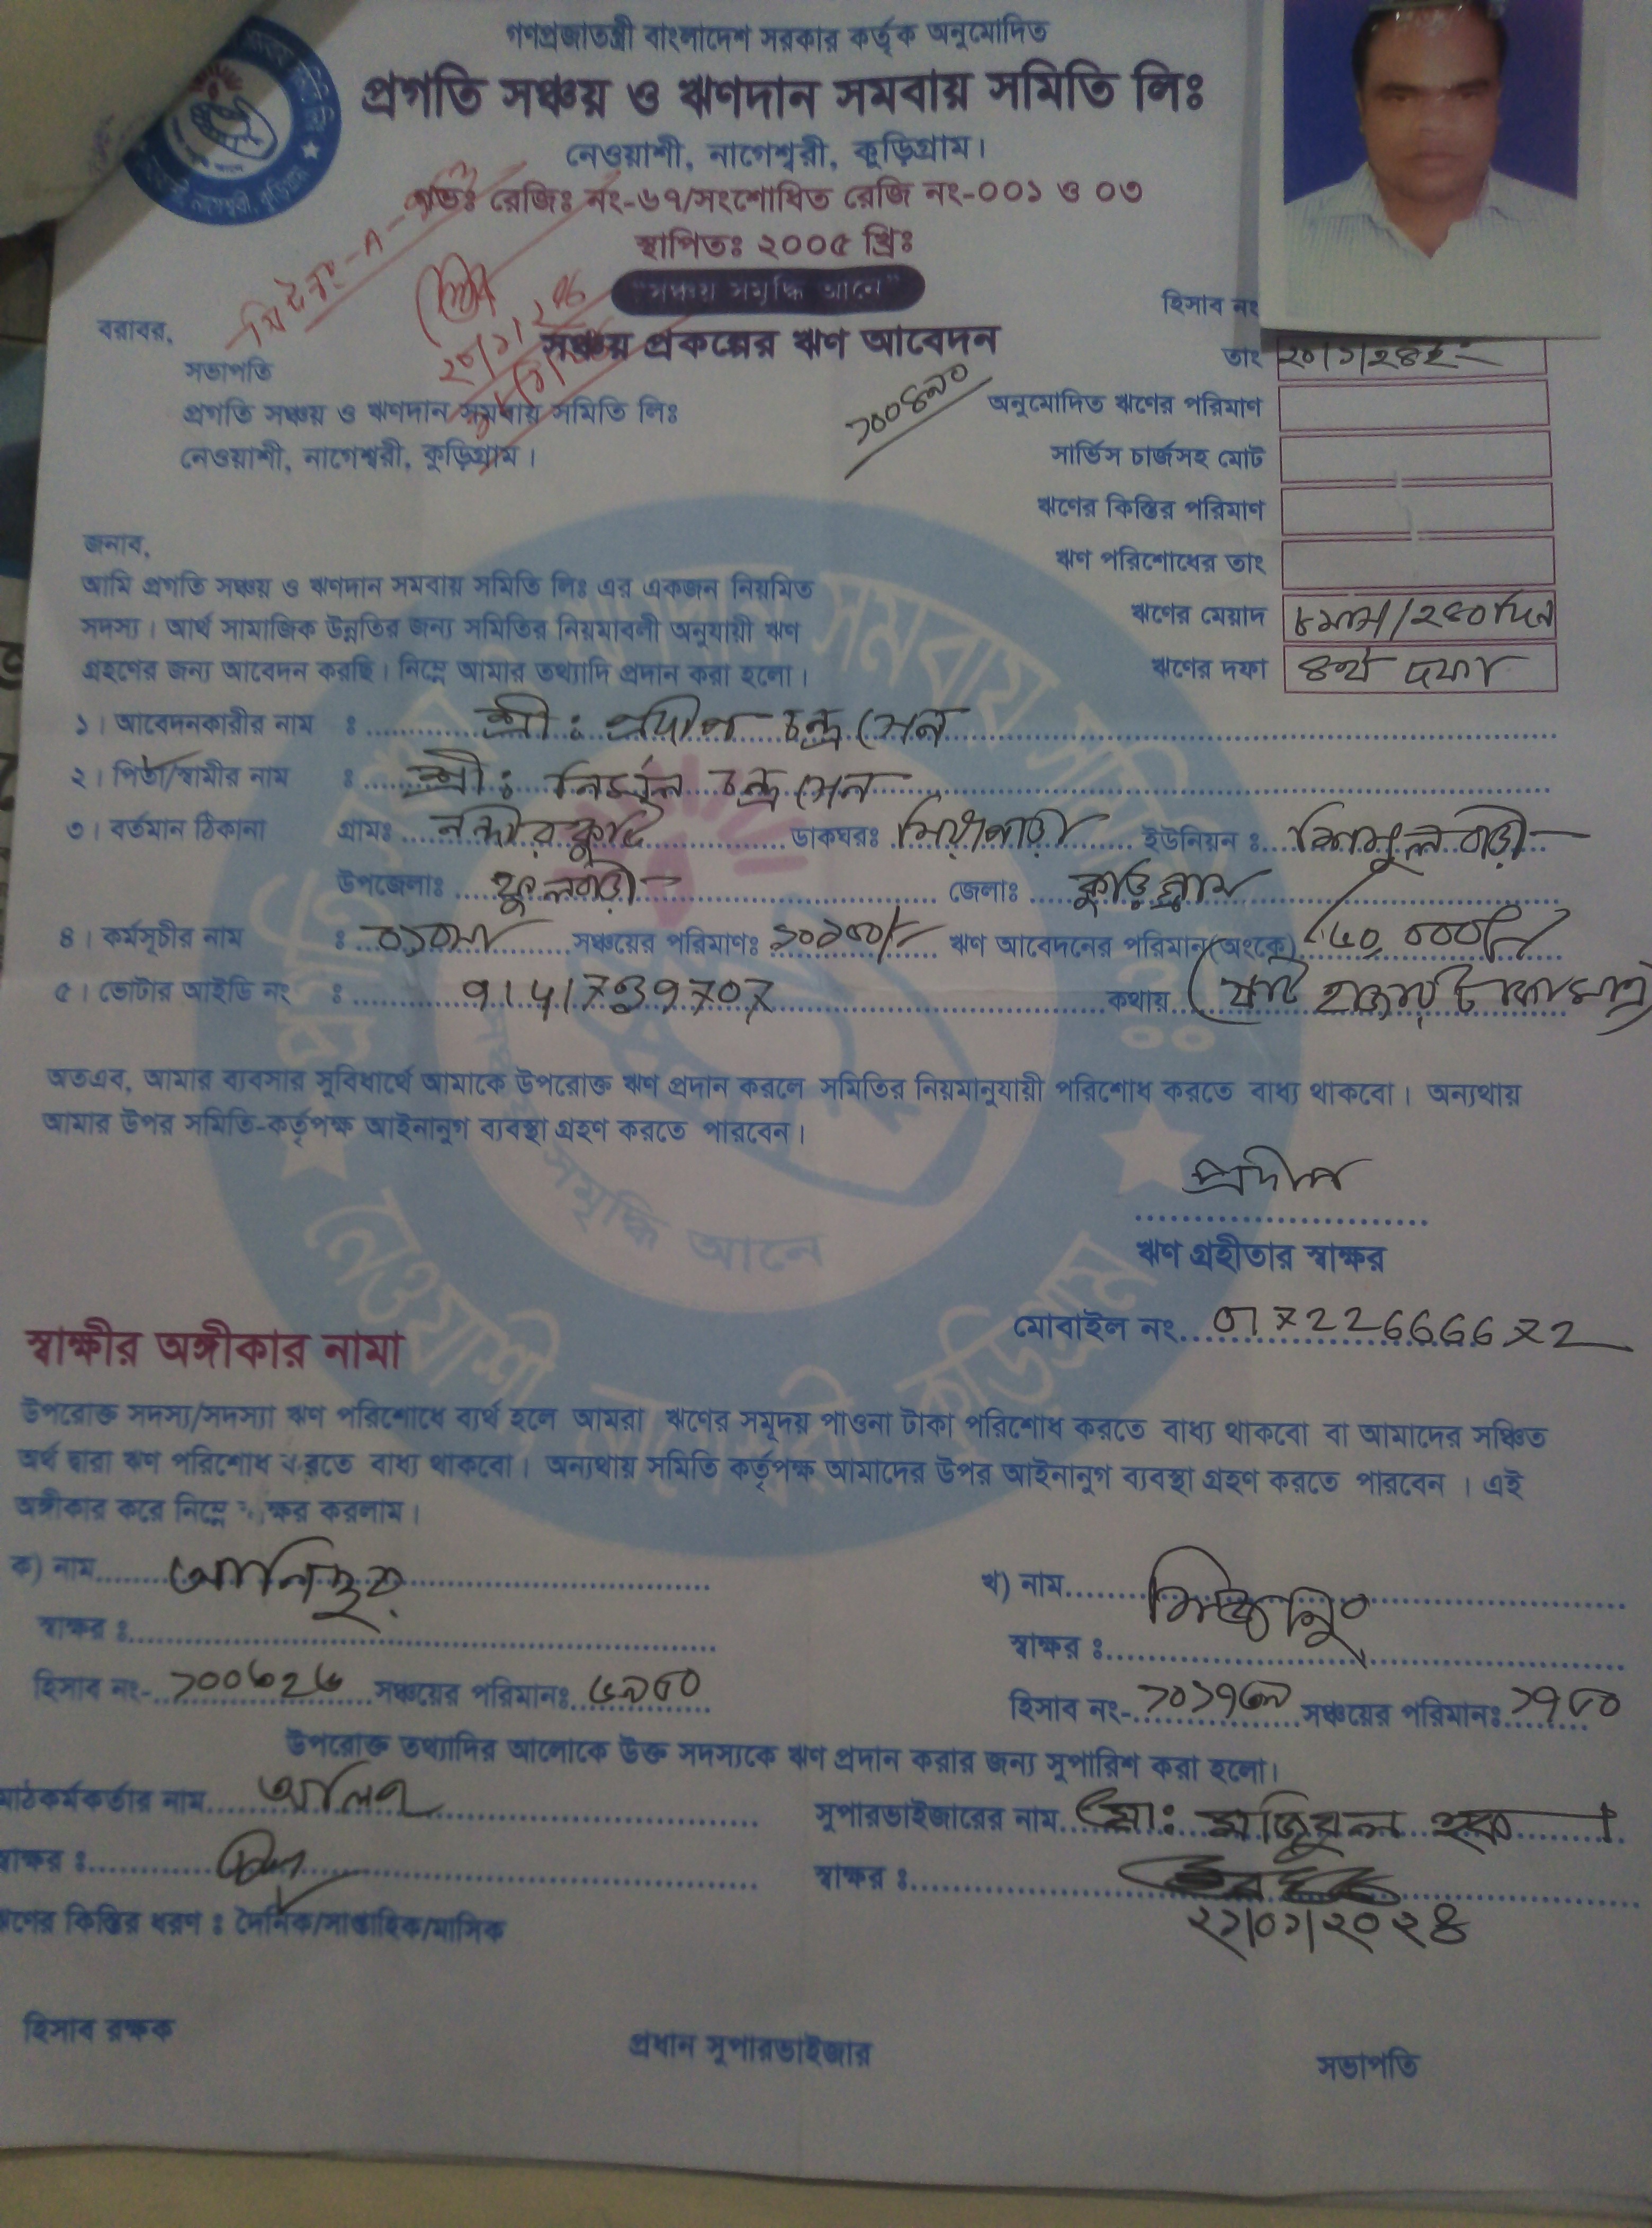 গণপ্রজাতন্ত্রী বাংলাদেশ সরকার কর্তৃক অনুমোদিত
প্রগতি সঞ্চয় ও ঋণদান সমবায় সমিতি লিঃ
নেওয়াশী, নাগেশ্বরী, কুড়িগ্রাম।
গভঃ রেজিঃ নং-৬৭/সংশোধিত রেজি নং-০০১ ও ০৩
স্থাপিতঃ ২০০৫ খ্রিঃ
"সঞ্চয় সমৃদ্ধি আনে"
সঞ্চয় প্রকল্পের ঋণ আবেদন
হিসাব নং
বরাবর,
সভাপতি
প্রগতি সঞ্চয় ও ঋণদান সমবায় সমিতি লিঃ
নেওয়াশী, নাগেশ্বরী, কুড়িগ্রাম।
১০০৪৯০
তাং ২০/১/২৪ইং
অনুমোদিত ঋণের পরিমাণ
সার্ভিস চার্জসহ মোট
ঋণের কিস্তির পরিমাণ
ঋণ পরিশোধের তাং
ঋণের মেয়াদ ৮মাস/২৪০দিন
ঋণের দফা ৪র্থ দফা
জনাব,
আমি প্রগতি সঞ্চয় ও ঋণদান সমবায় সমিতি লিঃ এর একজন নিয়মিত
সদস্য। আর্থ সামাজিক উন্নতির জন্য সমিতির নিয়মাবলী অনুযায়ী ঋণ
গ্রহণের জন্য আবেদন করছি। নিম্নে আমার তথ্যাদি প্রদান করা হলো।
১। আবেদনকারীর নাম : শ্রী: প্রদীপ চন্দ্র সেন
২। পিতা/স্বামীর নাম : শ্রী: নির্মল চন্দ্র সেন
৩। বর্তমান ঠিকানা গ্রামঃ নন্দীরকুটি ডাকঘরঃ মিয়াপাড়া ইউনিয়ন : শিমুলবাড়ী
উপজেলাঃ ফুলবাড়ী জেলাঃ কুড়িগ্রাম
৪। কর্মসূচীর নাম : সঞ্চয়ের পরিমাণঃ ১০১৫০/- ঋণ আবেদনের পরিমান(অংকে) ৬০,০০০/-
৫। ভোটার আইডি নং : 9141739707 কথায় (ষাট হাজার টাকা মাত্র)
অতএব, আমার ব্যবসার সুবিধার্থে আমাকে উপরোক্ত ঋণ প্রদান করলে সমিতির নিয়মানুযায়ী পরিশোধ করতে বাধ্য থাকবো। অন্যথায়
আমার উপর সমিতি-কর্তৃপক্ষ আইনানুগ ব্যবস্থা গ্রহণ করতে পারবেন।
প্রদীপ
ঋণ গ্রহীতার স্বাক্ষর
মোবাইল নং 01722666672
স্বাক্ষীর অঙ্গীকার নামা
উপরোক্ত সদস্য/সদস্যা ঋণ পরিশোধে ব্যর্থ হলে আমরা ঋণের সমূদয় পাওনা টাকা পরিশোধ করতে বাধ্য থাকবো বা আমাদের সঞ্চিত
অর্থ দ্বারা ঋণ পরিশোধ করতে বাধ্য থাকবো। অন্যথায় সমিতি কর্তৃপক্ষ আমাদের উপর আইনানুগ ব্যবস্থা গ্রহণ করতে পারবেন। এই
অঙ্গীকার করে নিম্নে স্বাক্ষর করলাম।
ক) নাম আনিছুর
খ) নাম মিজানুর
স্বাক্ষর :
স্বাক্ষর :
হিসাব নং- ১০০৬২৬ সঞ্চয়ের পরিমানঃ ৬৯৫০
হিসাব নং- ১০১৭৬৯ সঞ্চয়ের পরিমানঃ ১৭৫০
উপরোক্ত তথ্যাদির আলোকে উক্ত সদস্যকে ঋণ প্রদান করার জন্য সুপারিশ করা হলো।
মাঠকর্মকর্তার নাম
সুপারভাইজারের নাম মো: মজিবুল হক
স্বাক্ষর :
স্বাক্ষর :
২১/০১/২০২৪
ঋণের কিস্তির ধরণ : দৈনিক/সাপ্তাহিক/মাসিক
হিসাব রক্ষক
প্রধান সুপারভাইজার
সভাপতি